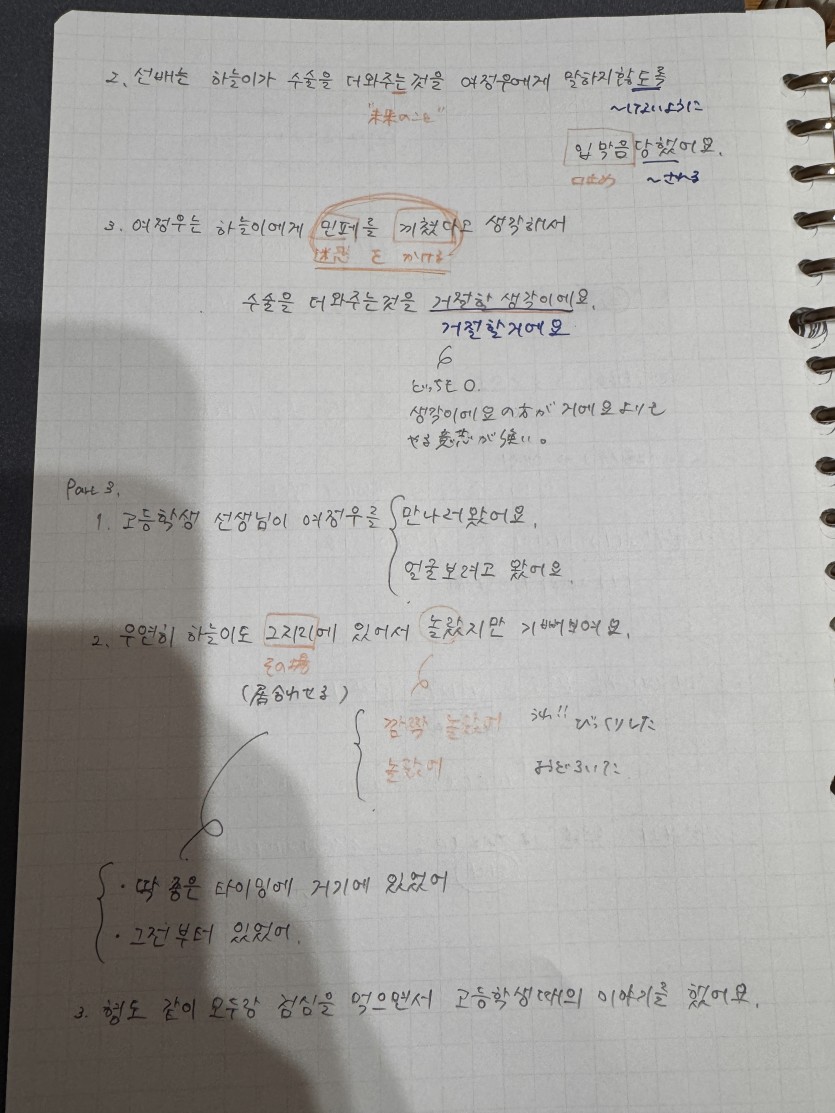 2. 선배는 하늘이가 수술을 더와주는것을 여정우에게 말하지않도록
"未来のこと"
~しないように
입막음 당했어요.
口止め ~される
3. 여정우는 하늘이에게 민폐를 끼쳤다고 생각해서
迷惑 を かける
수술을 더와주는것을 거절할 생각이에요.
거절할거에요
どっちも〇.
생각이에요の方が 거에요よりも
やる意志が強い。
Part 3.
1. 고등학생 선생님이 여정우를 만나러왔어요.
얼굴보려고 왔어요.
2. 우연히 하늘이도 그자리에 있어서 놀랐지만 기뻐보여요.
その場
(居合わせる)
깜짝 놀랐어 うわ!! びっくりした
놀랐어 おどろいた
· 딱 좋은 타이밍에 거기에 있었어
· 그전부터 있었어.
3. 형도 같이 모두랑 점심을 먹으면서 고등학생때의 이야기를 했어요.